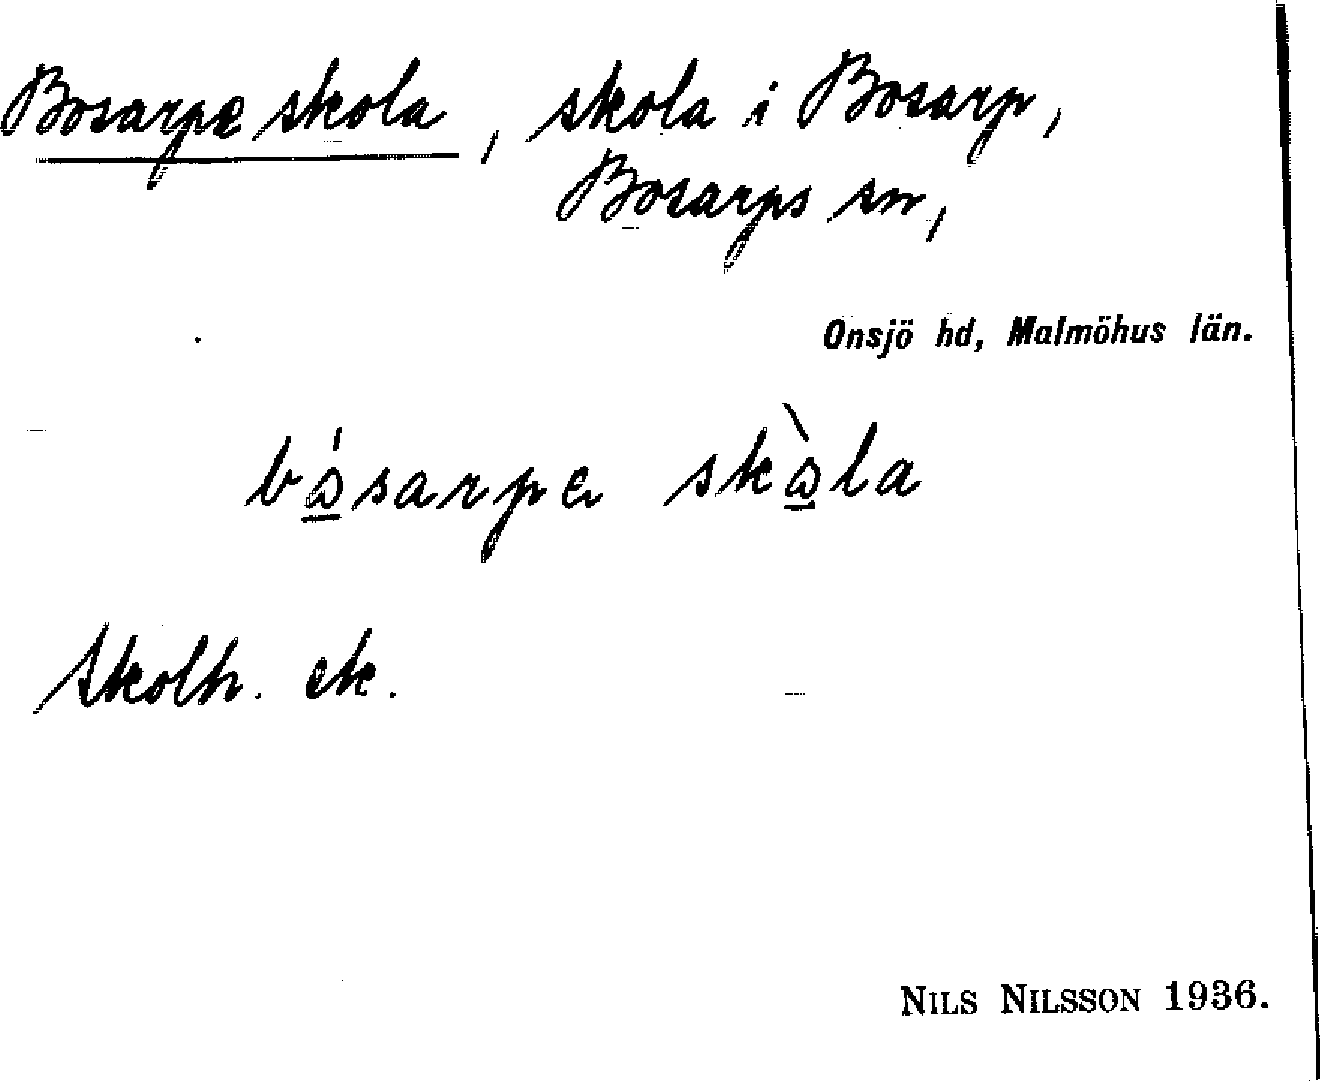 Bosarpe skola, skola i Bosarp,
Bosarps sn,
Onsjö hd, Malmöhus län.
bósarpe skòla
Skolh. ek.
NILS NILSSON 1936.